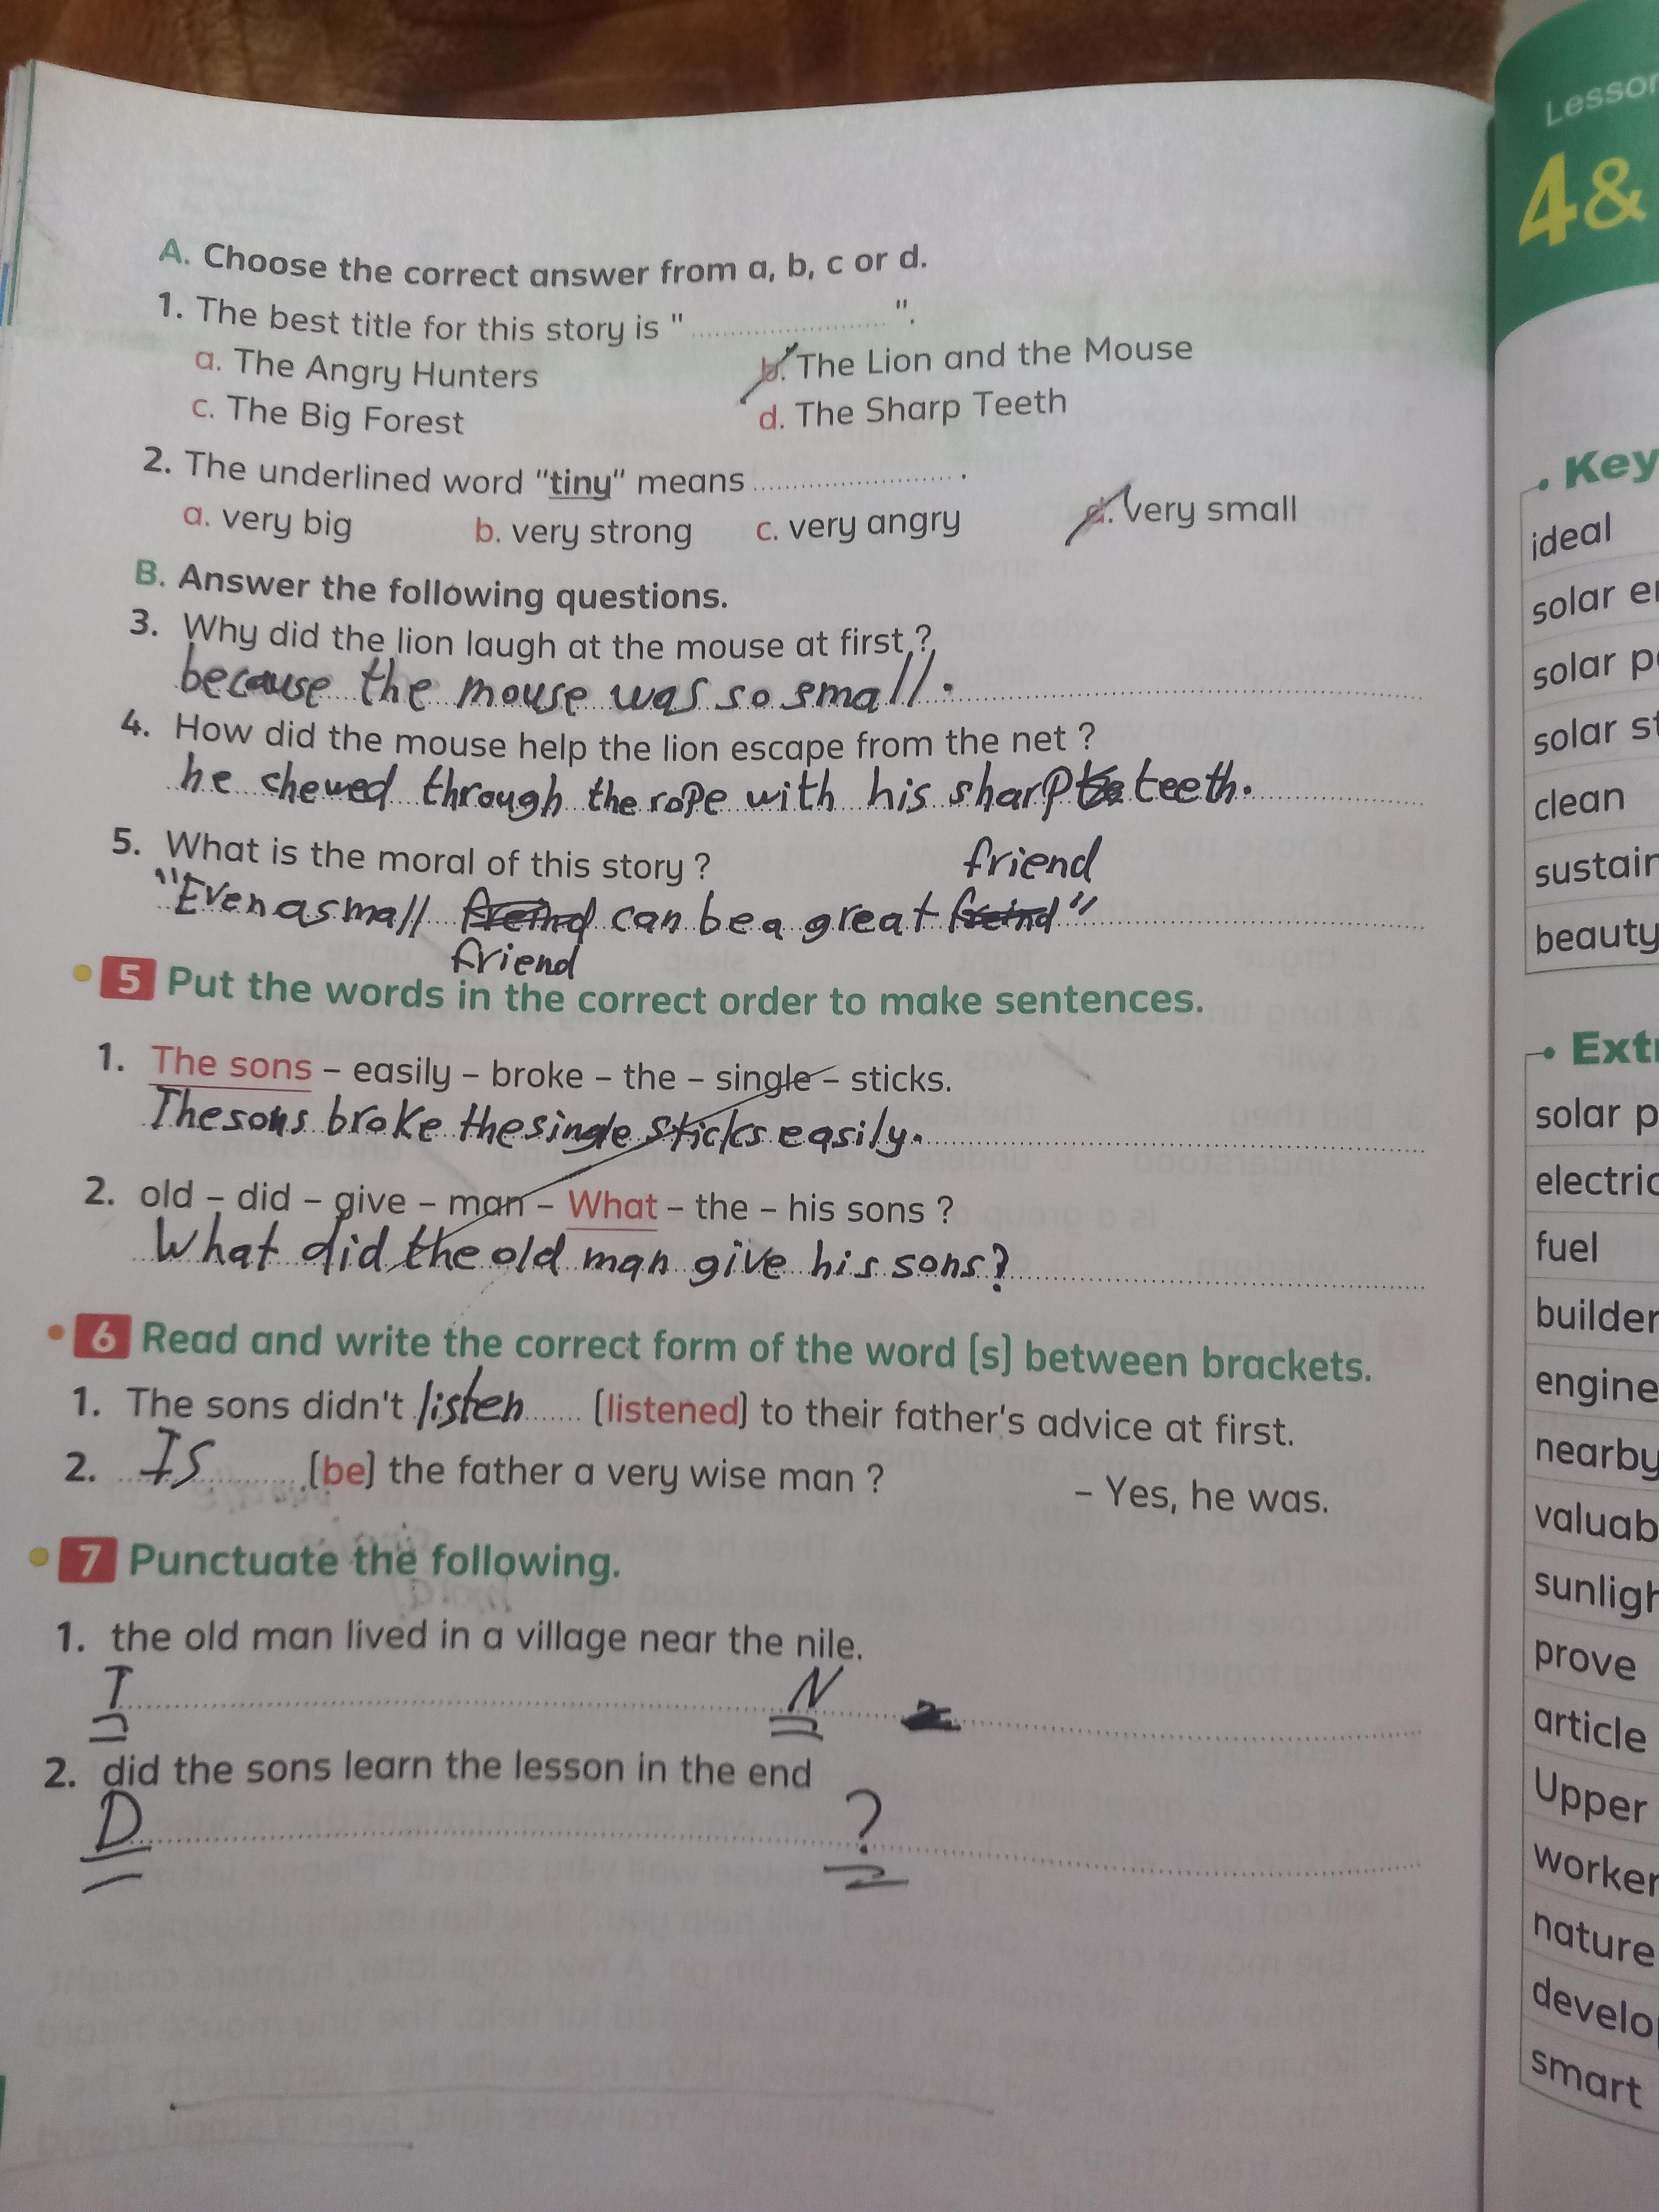 A. Choose the correct answer from a, b, c or d.
1. The best title for this story is " .................... ".
a. The Angry Hunters b. The Lion and the Mouse
c. The Big Forest d. The Sharp Teeth
2. The underlined word "tiny" means .................... .
a. very big b. very strong c. very angry d. very small
B. Answer the following questions.
3. Why did the lion laugh at the mouse at first ?
because the mouse was so small.
4. How did the mouse help the lion escape from the net ?
he chewed through the rope with his sharp teeth.
5. What is the moral of this story ?
friend
"Even a small freind can be a great freind"
friend
5 Put the words in the correct order to make sentences.
1. The sons – easily – broke – the – single – sticks.
The sons broke the single sticks easily.
2. old – did – give – man – What – the – his sons ?
What did the old man give his sons?
6 Read and write the correct form of the word (s) between brackets.
1. The sons didn't listen (listened) to their father's advice at first.
2. Is (be) the father a very wise man ? – Yes, he was.
7 Punctuate the following.
1. the old man lived in a village near the nile.
T N
2. did the sons learn the lesson in the end
D ?
Lesson
4&
Key
ideal
solar
solar
solar
clean
beauty
solar
fuel
builder
engine
nearby
prove
article
Upper
worker
nature
smart